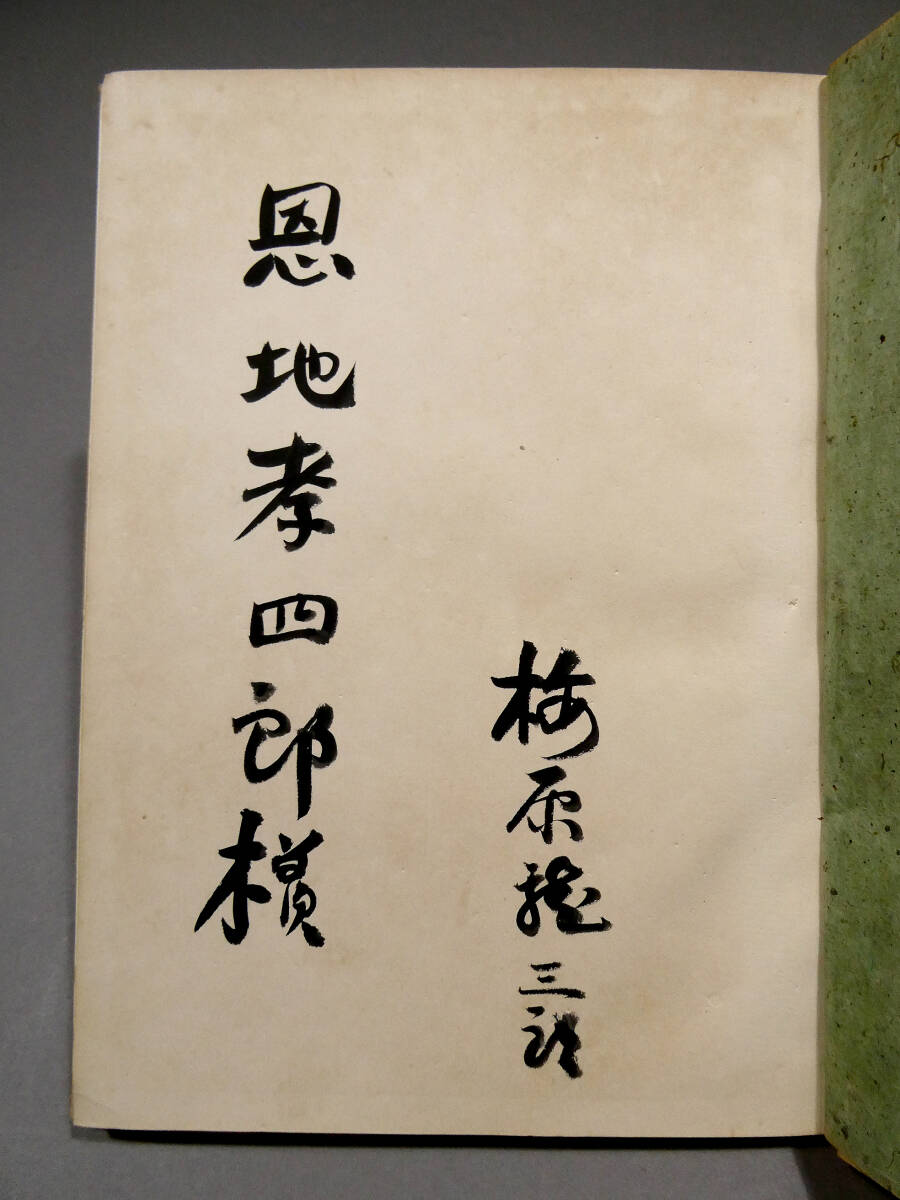 梅原龍三郎
恩地孝四郎様